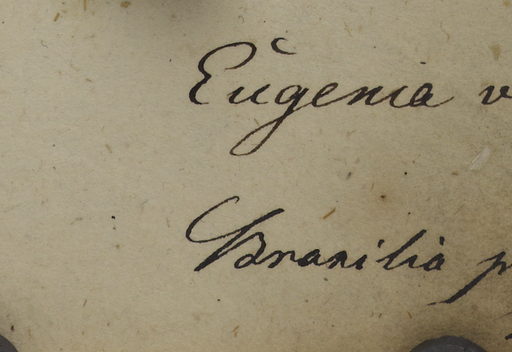 Eugenia v
Brasilia p